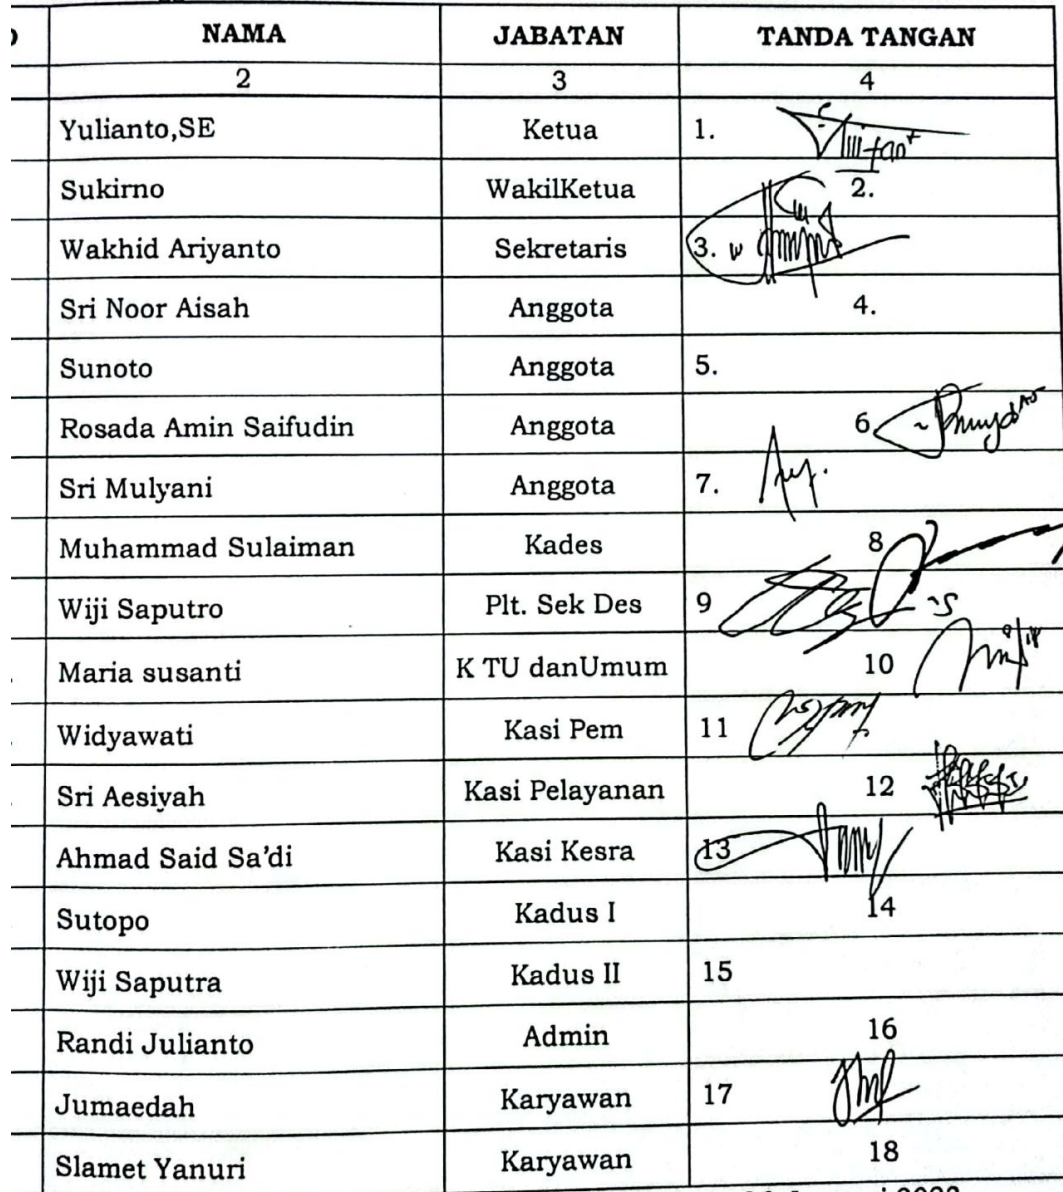 NAMA JABATAN TANDA TANGAN
2 3 4
Yulianto,SE Ketua 1.
Sukirno WakilKetua 2.
Wakhid Ariyanto Sekretaris 3.
Sri Noor Aisah Anggota 4.
Sunoto Anggota 5.
Rosada Amin Saifudin Anggota 6
Sri Mulyani Anggota 7.
Muhammad Sulaiman Kades 8
Wiji Saputro Plt. Sek Des 9
Maria susanti K TU danUmum 10
Widyawati Kasi Pem 11
Sri Aesiyah Kasi Pelayanan 12
Ahmad Said Sa'di Kasi Kesra 13
Sutopo Kadus I 14
Wiji Saputra Kadus II 15
Randi Julianto Admin 16
Jumaedah Karyawan 17
Slamet Yanuri Karyawan 18